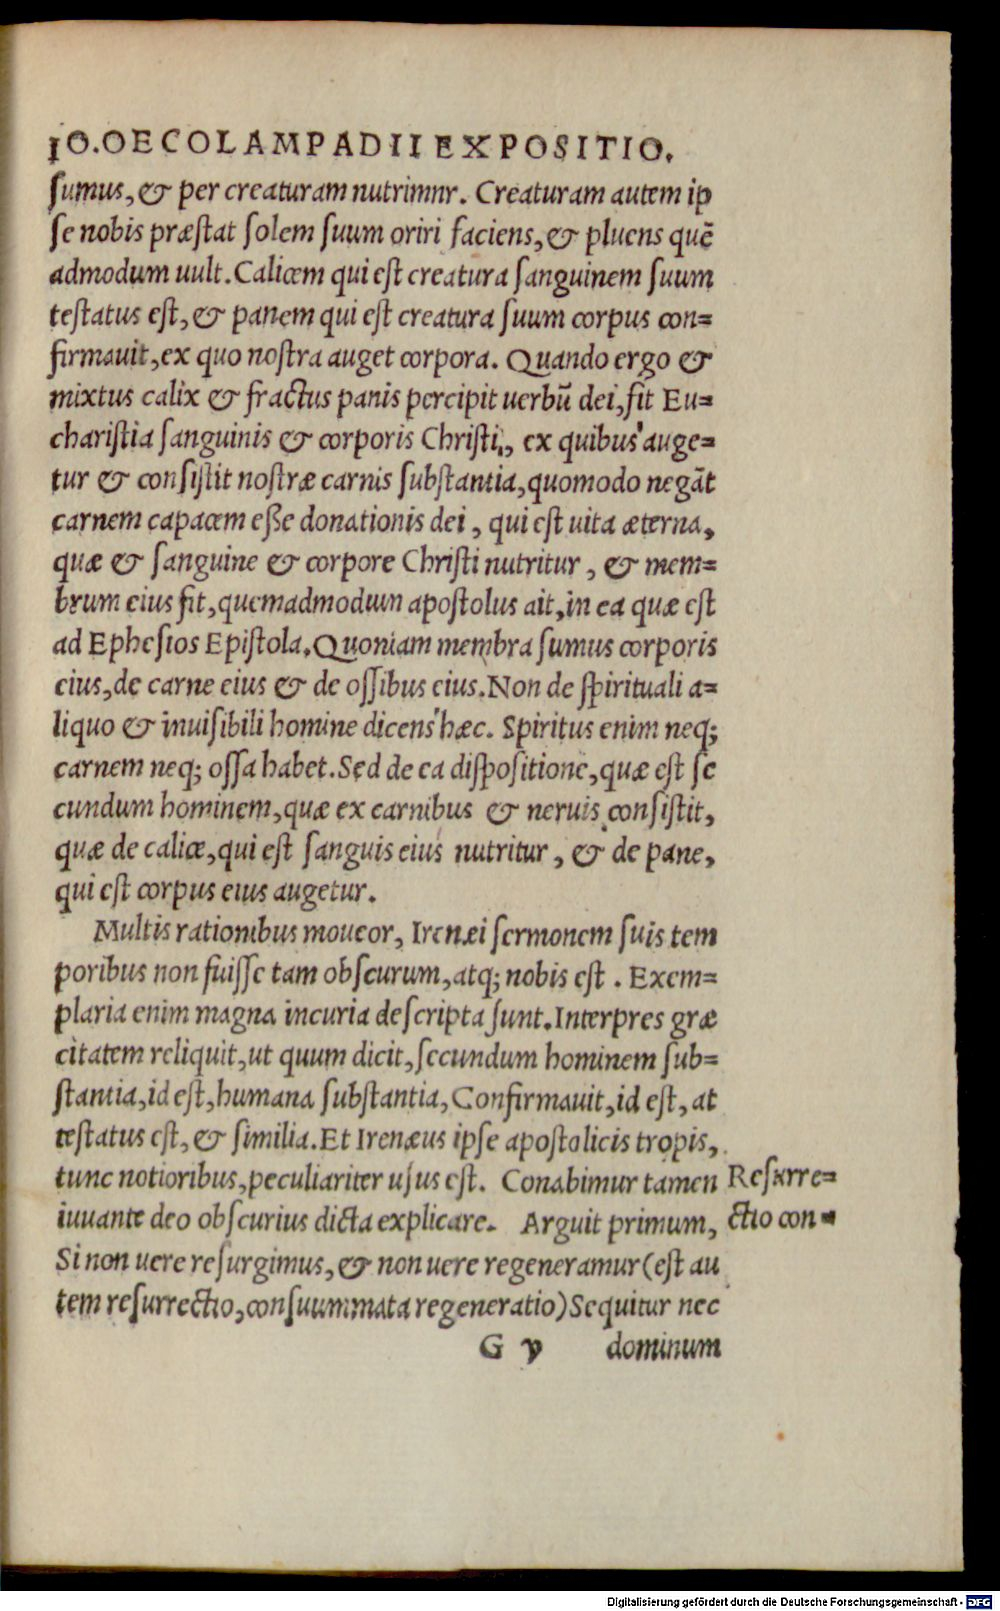 IO. OECOLAMPADII EXPOSITIO.
ſumus, & per creaturam nutrimnr. Creaturam autem ip
ſe nobis præſtat ſolem ſuum oriri faciens, & pluens quē
admodum uult. Calicem qui eſt creatura ſanguinem ſuum
teſtatus eſt, & panem qui eſt creatura ſuum corpus con=
firmauit, ex quo noſtra auget corpora. Quando ergo &
mixtus calix & fractus panis percipit uerbū dei, fit Eu=
chariſtia ſanguinis & corporis Chriſti, ex quibus auge=
tur & conſiſtit noſtræ carnis ſubſtantia, quomodo negāt
carnem capacem eße donationis dei, qui eſt uita æterna,
quæ & ſanguine & corpore Chriſti nutritur, & mem=
brum eius fit, quemadmodum apoſtolus ait, in ea quæ eſt
ad Epheſios Epiſtola. Quoniam membra ſumus corporis
eius, de carne eius & de oſſibus eius. Non de ſpirituali a=
liquo & inuiſibili homine dicens hæc. Spiritus enim neq;
carnem neq; oſſa habet. Sed de ea diſpoſitione, quæ eſt ſe
cundum hominem, quæ ex carnibus & neruis conſiſtit,
quæ de calice, qui eſt ſanguis eius nutritur, & de pane,
qui eſt corpus eius augetur.
Multis rationibus moueor, Irenæi ſermonem ſuis tem
poribus non fuiſſe tam obſcurum, atq; nobis eſt. Exem=
plaria enim magna incuria deſcripta ſunt. Interpres græ
citatem reliquit, ut quum dicit, ſecundum hominem ſub=
ſtantia, id eſt, humana ſubſtantia, Confirmauit, id eſt, at
teſtatus eſt, & ſimilia. Et Irenæus ipſe apoſtolicis tropis,
tunc notioribus, peculiariter uſus eſt. Conabimur tamen
iuuante deo obſcurius dicta explicare. Arguit primum,
Si non uere reſurgimus, & non uere regeneramur (eſt au
tem reſurrectio, conſuummata regeneratio) Sequitur nec
G v dominum
Reſurre=
ctio con=
Digitalisierung gefördert durch die Deutsche Forschungsgemeinschaft - DFG